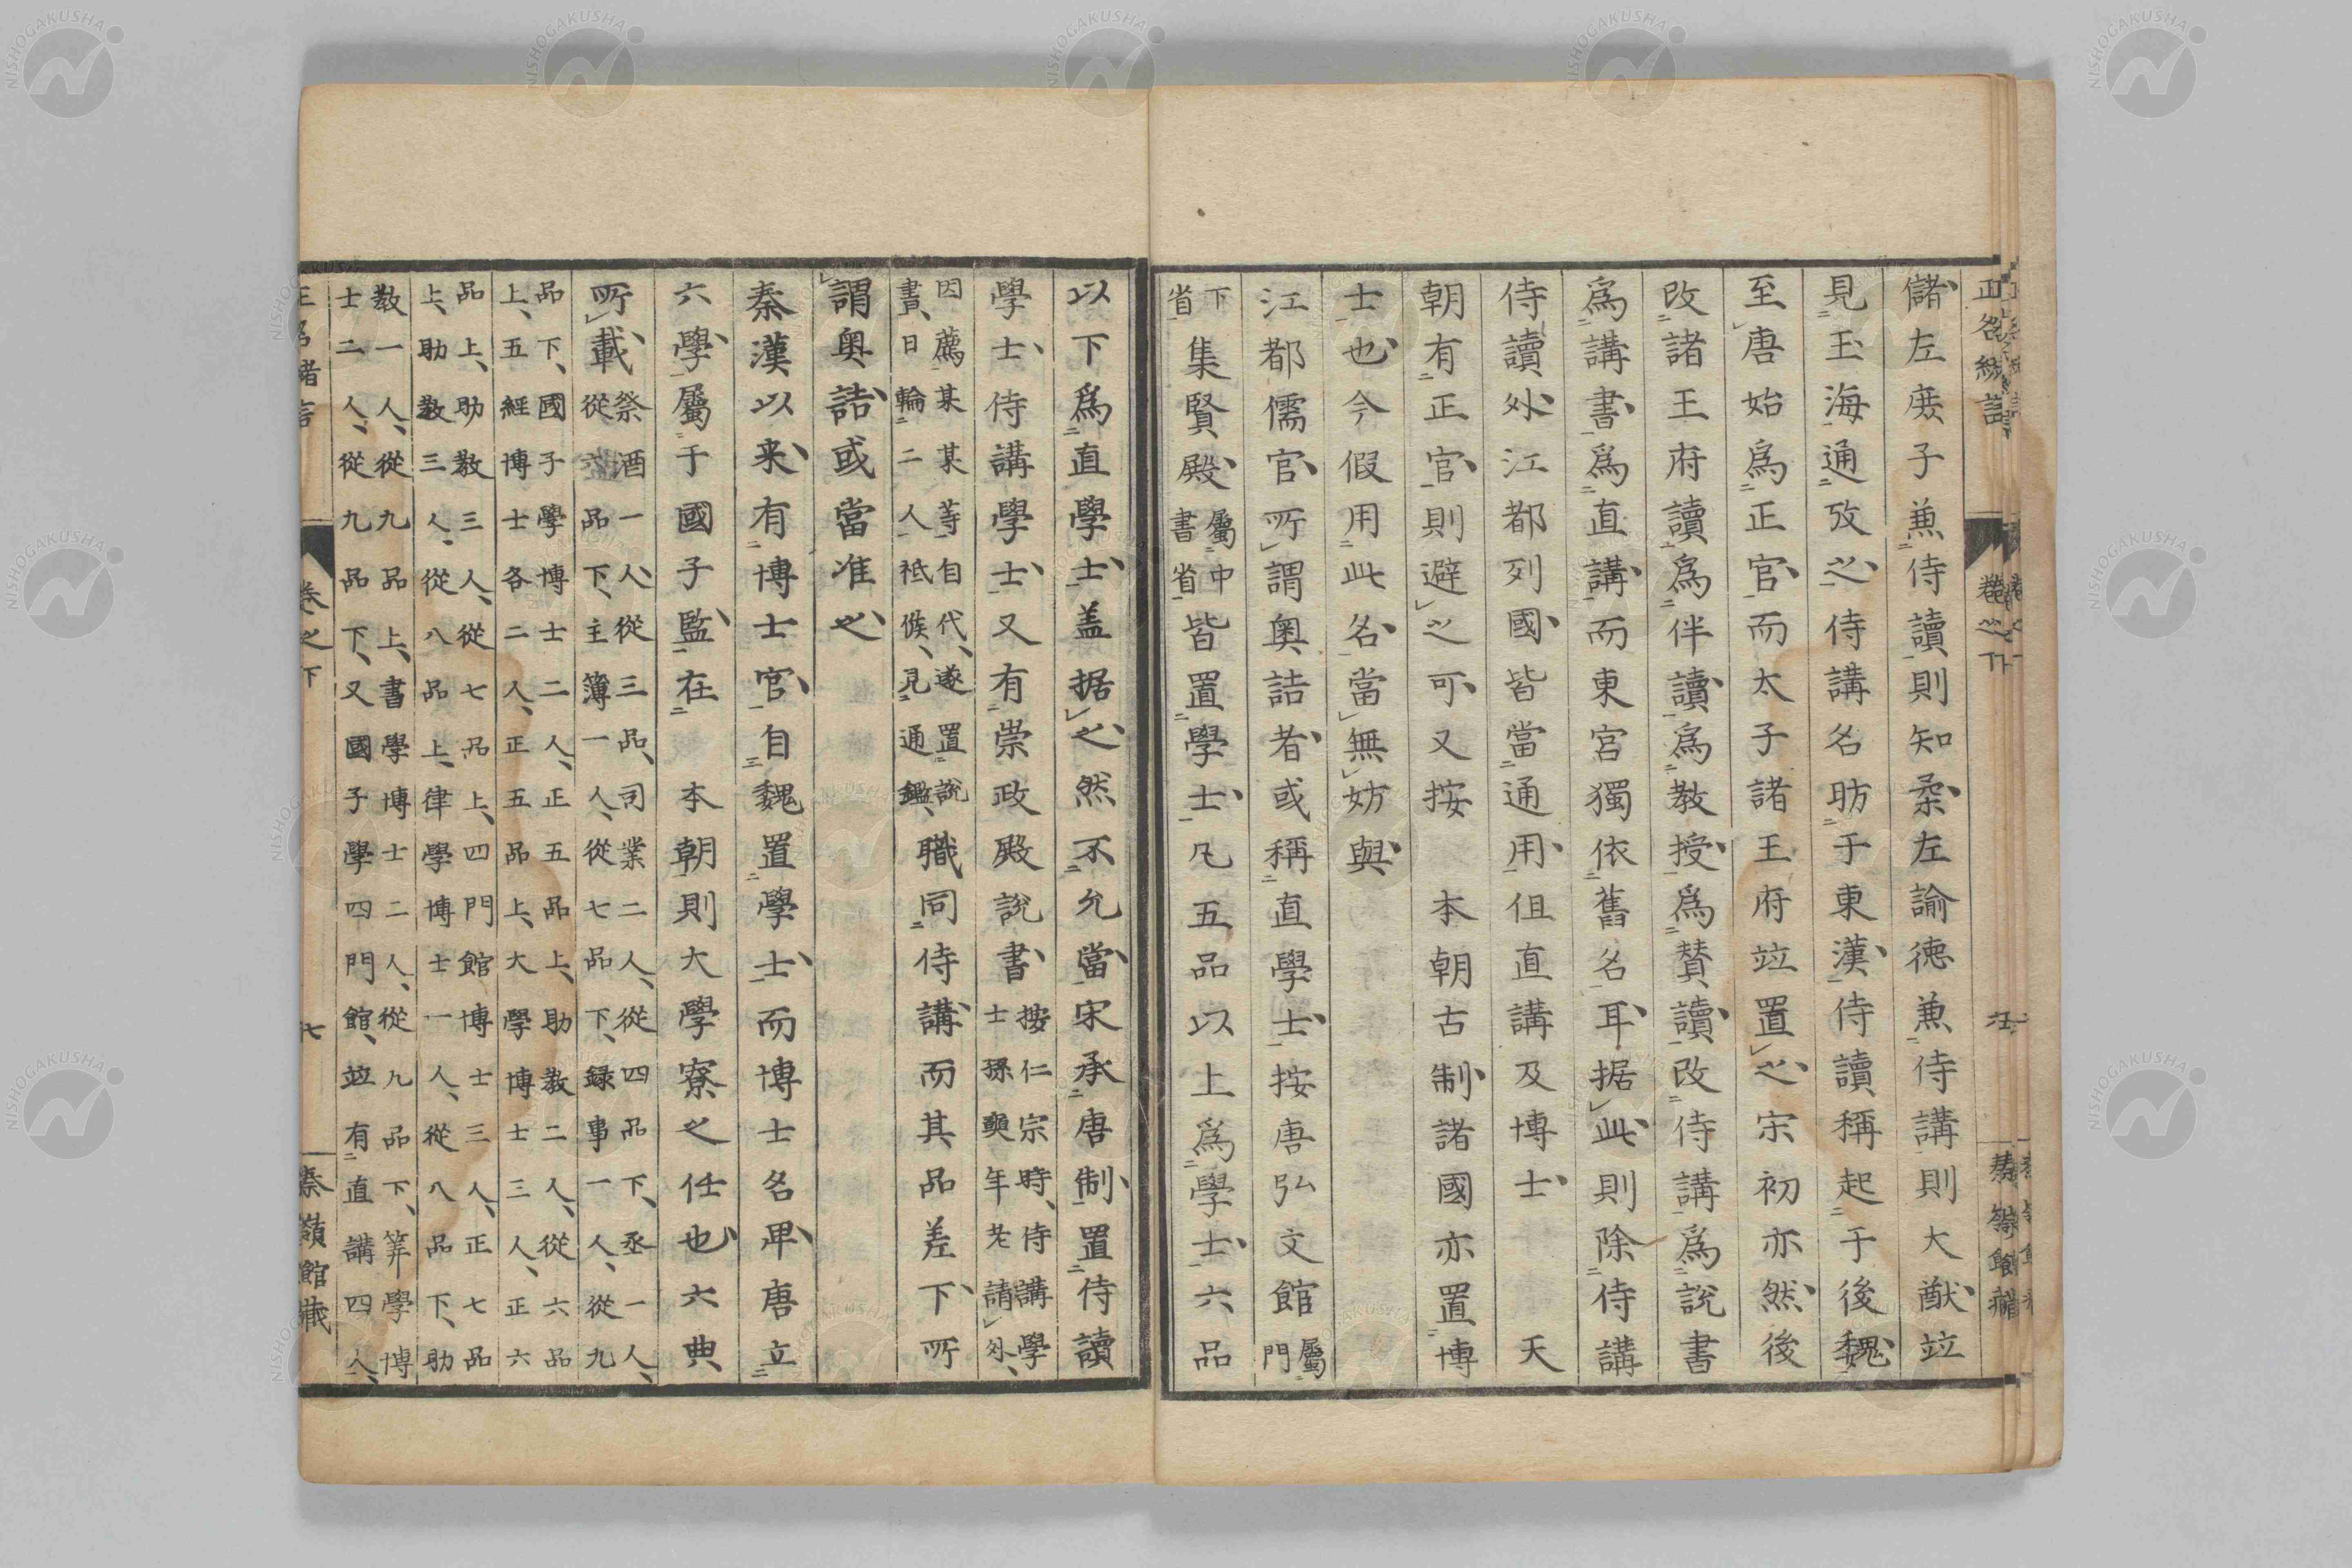 儲左庻子兼侍讀則知桒左諭德兼侍講則大猷竝
見玉海通攷之侍講名昉于東漢侍讀稱起于後魏
至唐始爲正官而太子諸王府竝置之宋初亦然後
改諸王府讀爲伴讀爲教授爲賛讀改侍講爲說書
爲講書爲直講而東宮獨依舊名耳据此則除侍講
侍讀外江都列國皆當通用但直講及博士 天
朝有正官則避之可又按 本朝古制諸國亦置博
士也今假用此名當無妨與
江都儒官所謂奥詰者或稱直學士按唐弘文館屬門
下省集賢殿屬中書省皆置學士凡五品以上爲學士六品
以下爲直學士盖据之然不允當宋承唐制置侍讀
學士侍講學士又有崇政殿說書按仁宗時侍講學士孫奭年老請外
因薦某某等自代遂置說書日輪二人祗候見通鑑職同侍講而其品差下所
謂奥詰或當准之
秦漢以来有博士官自魏置學士而博士名卑唐立
六學屬于國子監在 本朝則大學寮之任也六典
所載祭酒一人從三品司業二人從四品下丞一人從六品下主簿一人從七品下録事一人從九
品下國子學博士二人正五品上助教二人從六品上五經博士各二人正五品上大學博士三人正六
品上助教三人從七品上四門館博士三人正七品上助教三人從八品上律學博士一人從八品下助
教一人從九品上書學博士二人從九品下筭學博士二人從九品下又國子學四門館竝有直講四人
卷之下
七
嶺館藏